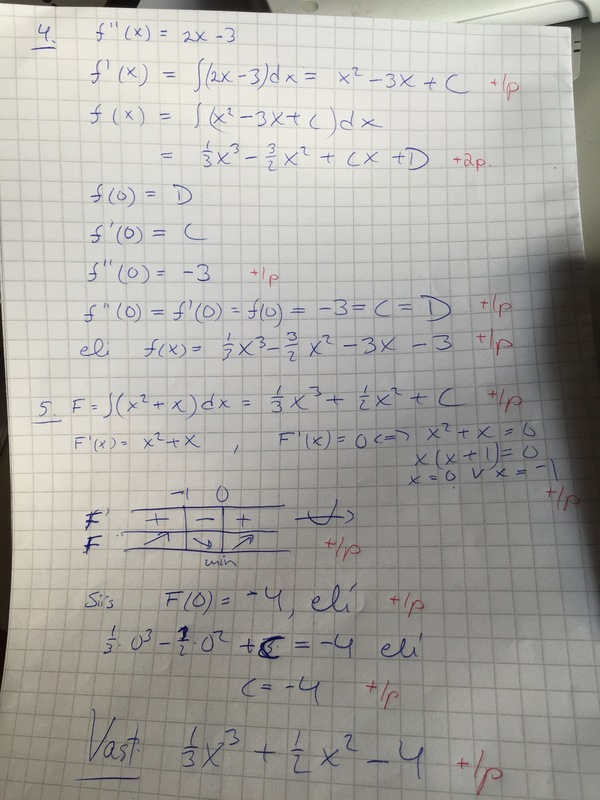 4. f''(x) = 2x - 3
f'(x) = ∫(2x - 3)dx = x² - 3x + C +1p
f(x) = ∫(x² - 3x + C)dx
= 1/3 x³ - 3/2 x² + Cx + D +2p.
f(0) = D
f'(0) = C
f''(0) = -3 +1p
f''(0) = f'(0) = f(0) = -3 = C = D +1p
eli f(x) = 1/3 x³ - 3/2 x² - 3x - 3 +1p
5. F = ∫(x² + x)dx = 1/3 x³ + 1/2 x² + C +1p
F'(x) = x² + x , F'(x) = 0 <=> x² + x = 0
x(x + 1) = 0
x = 0 ∨ x = -1
+1p
-1 0
F' + - + +
F ↗ ↘ ↗ +1p
min
Siis F(0) = -4, eli +1p
1/3 · 0³ - 1/2 · 0² + C = -4 eli
C = -4 +1p
Vast. 1/3 x³ + 1/2 x² - 4 +1p